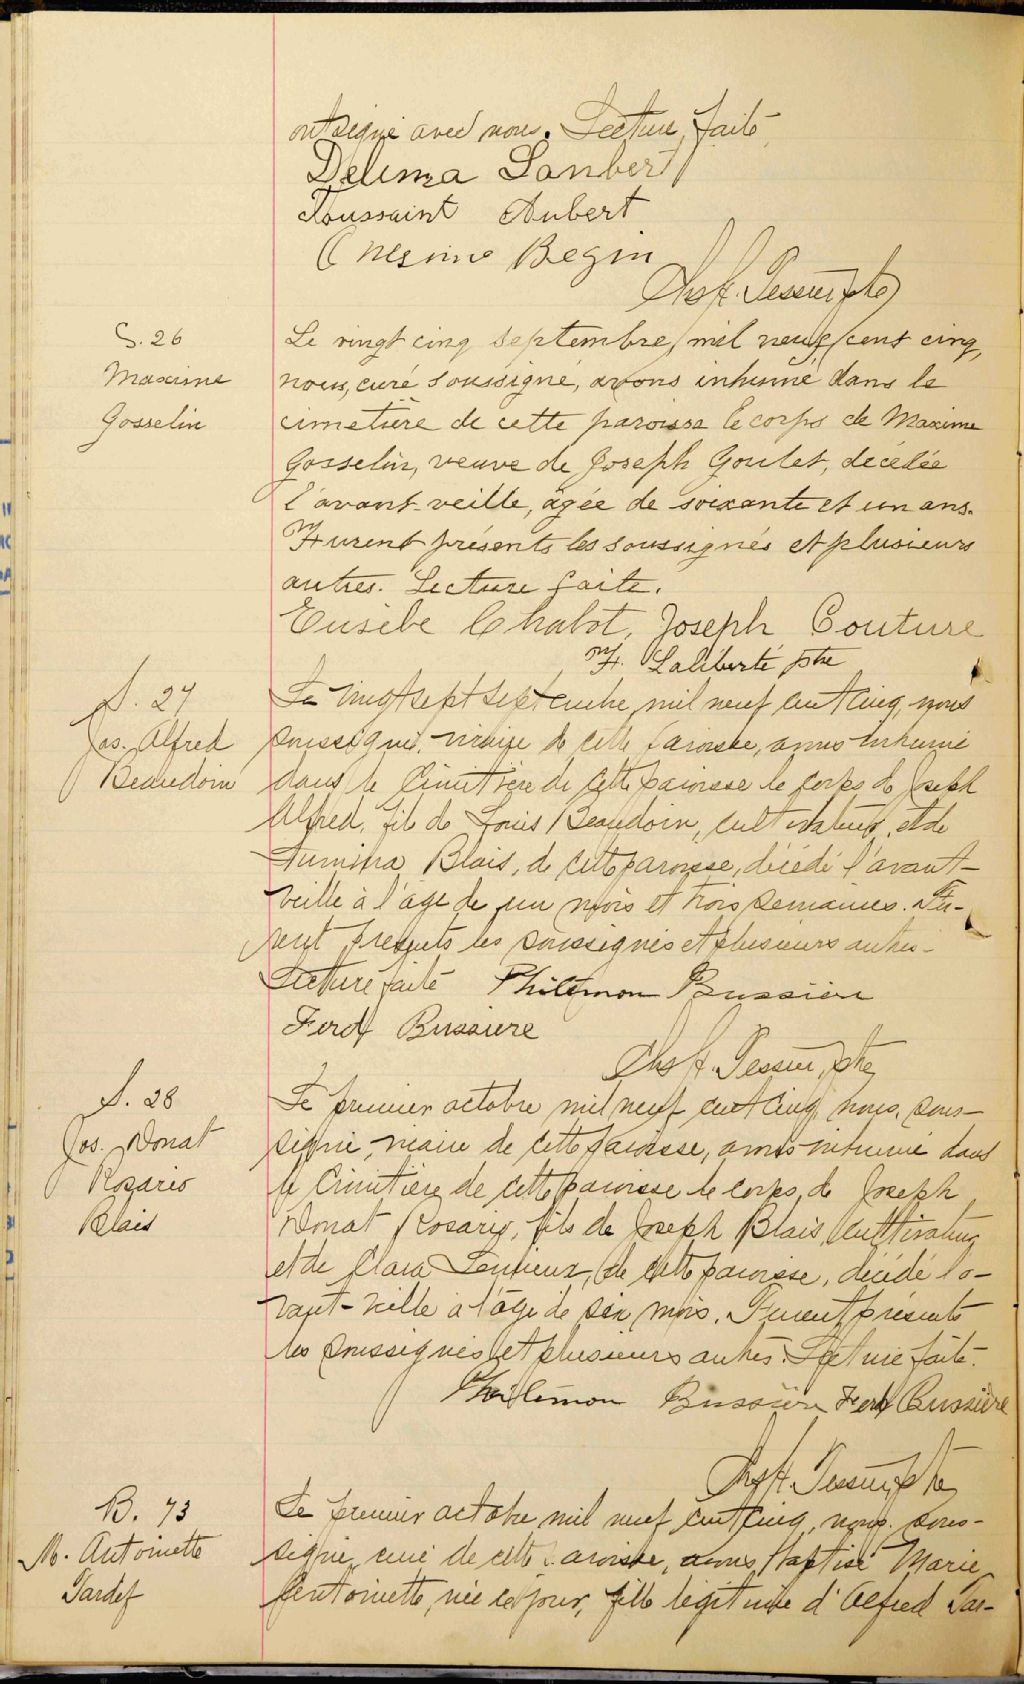 ont signé avec nous. Lecture faite
Delima Lambert
Toussaint Aubert
Onesime Begin
Chs A. Tessier, ptre
S. 26
Maxime
Gosselin
Le vingt cinq septembre, mil neuf cent cinq,
nous, curé soussigné, avons inhumé dans le
cimetière de cette paroisse le corps de Maxime
Gosselin, veuve de Joseph Goulet, décédée
l'avant-veille, âgée de soixante et un ans.
Furent présents les soussignés et plusieurs
autres. Lecture faite.
Eusèbe Chabot, Joseph Couture
F. Laliberté ptre
S. 27
Jos. Alfred
Beaudoin
Le vingt sept septembre mil neuf cent cinq, nous
soussigné, vicaire de cette paroisse, avons inhumé
dans le cimetière de cette paroisse le corps de Joseph
Alfred, fils de Louis Beaudoin, cultivateur, et de
Blais, de cette paroisse, décédé l'avant-
veille à l'âge de un mois et trois semaines. Fu-
rent présents les soussignés et plusieurs autres.
Lecture faite Philémon Bussière
Ferd Bussiere
Chs A. Tessier, ptre
S. 28
Jos. Donat
Rosario
Blais
Le premier octobre mil neuf cent cinq, nous, sous-
signé, vicaire de cette paroisse, avons inhumé dans
le cimetière de cette paroisse le corps de Joseph
Donat Rosario, fils de Joseph Blais, cultivateur
et de Clara Lemieux, de cette paroisse, décédé l'a-
vant-veille à l'âge de six mois. Furent présents
les soussignés et plusieurs autres. Lecture faite.
Philémon Bussière Ferd Bussière
Chs A. Tessier, ptre
B. 73
M. Antoinette
Tardif
Le premier octobre mil neuf cent cinq, nous, sous-
signé, curé de cette paroisse, avons baptisé Marie
Antoinette, née ce jour, fille légitime d'Alfred Tar-